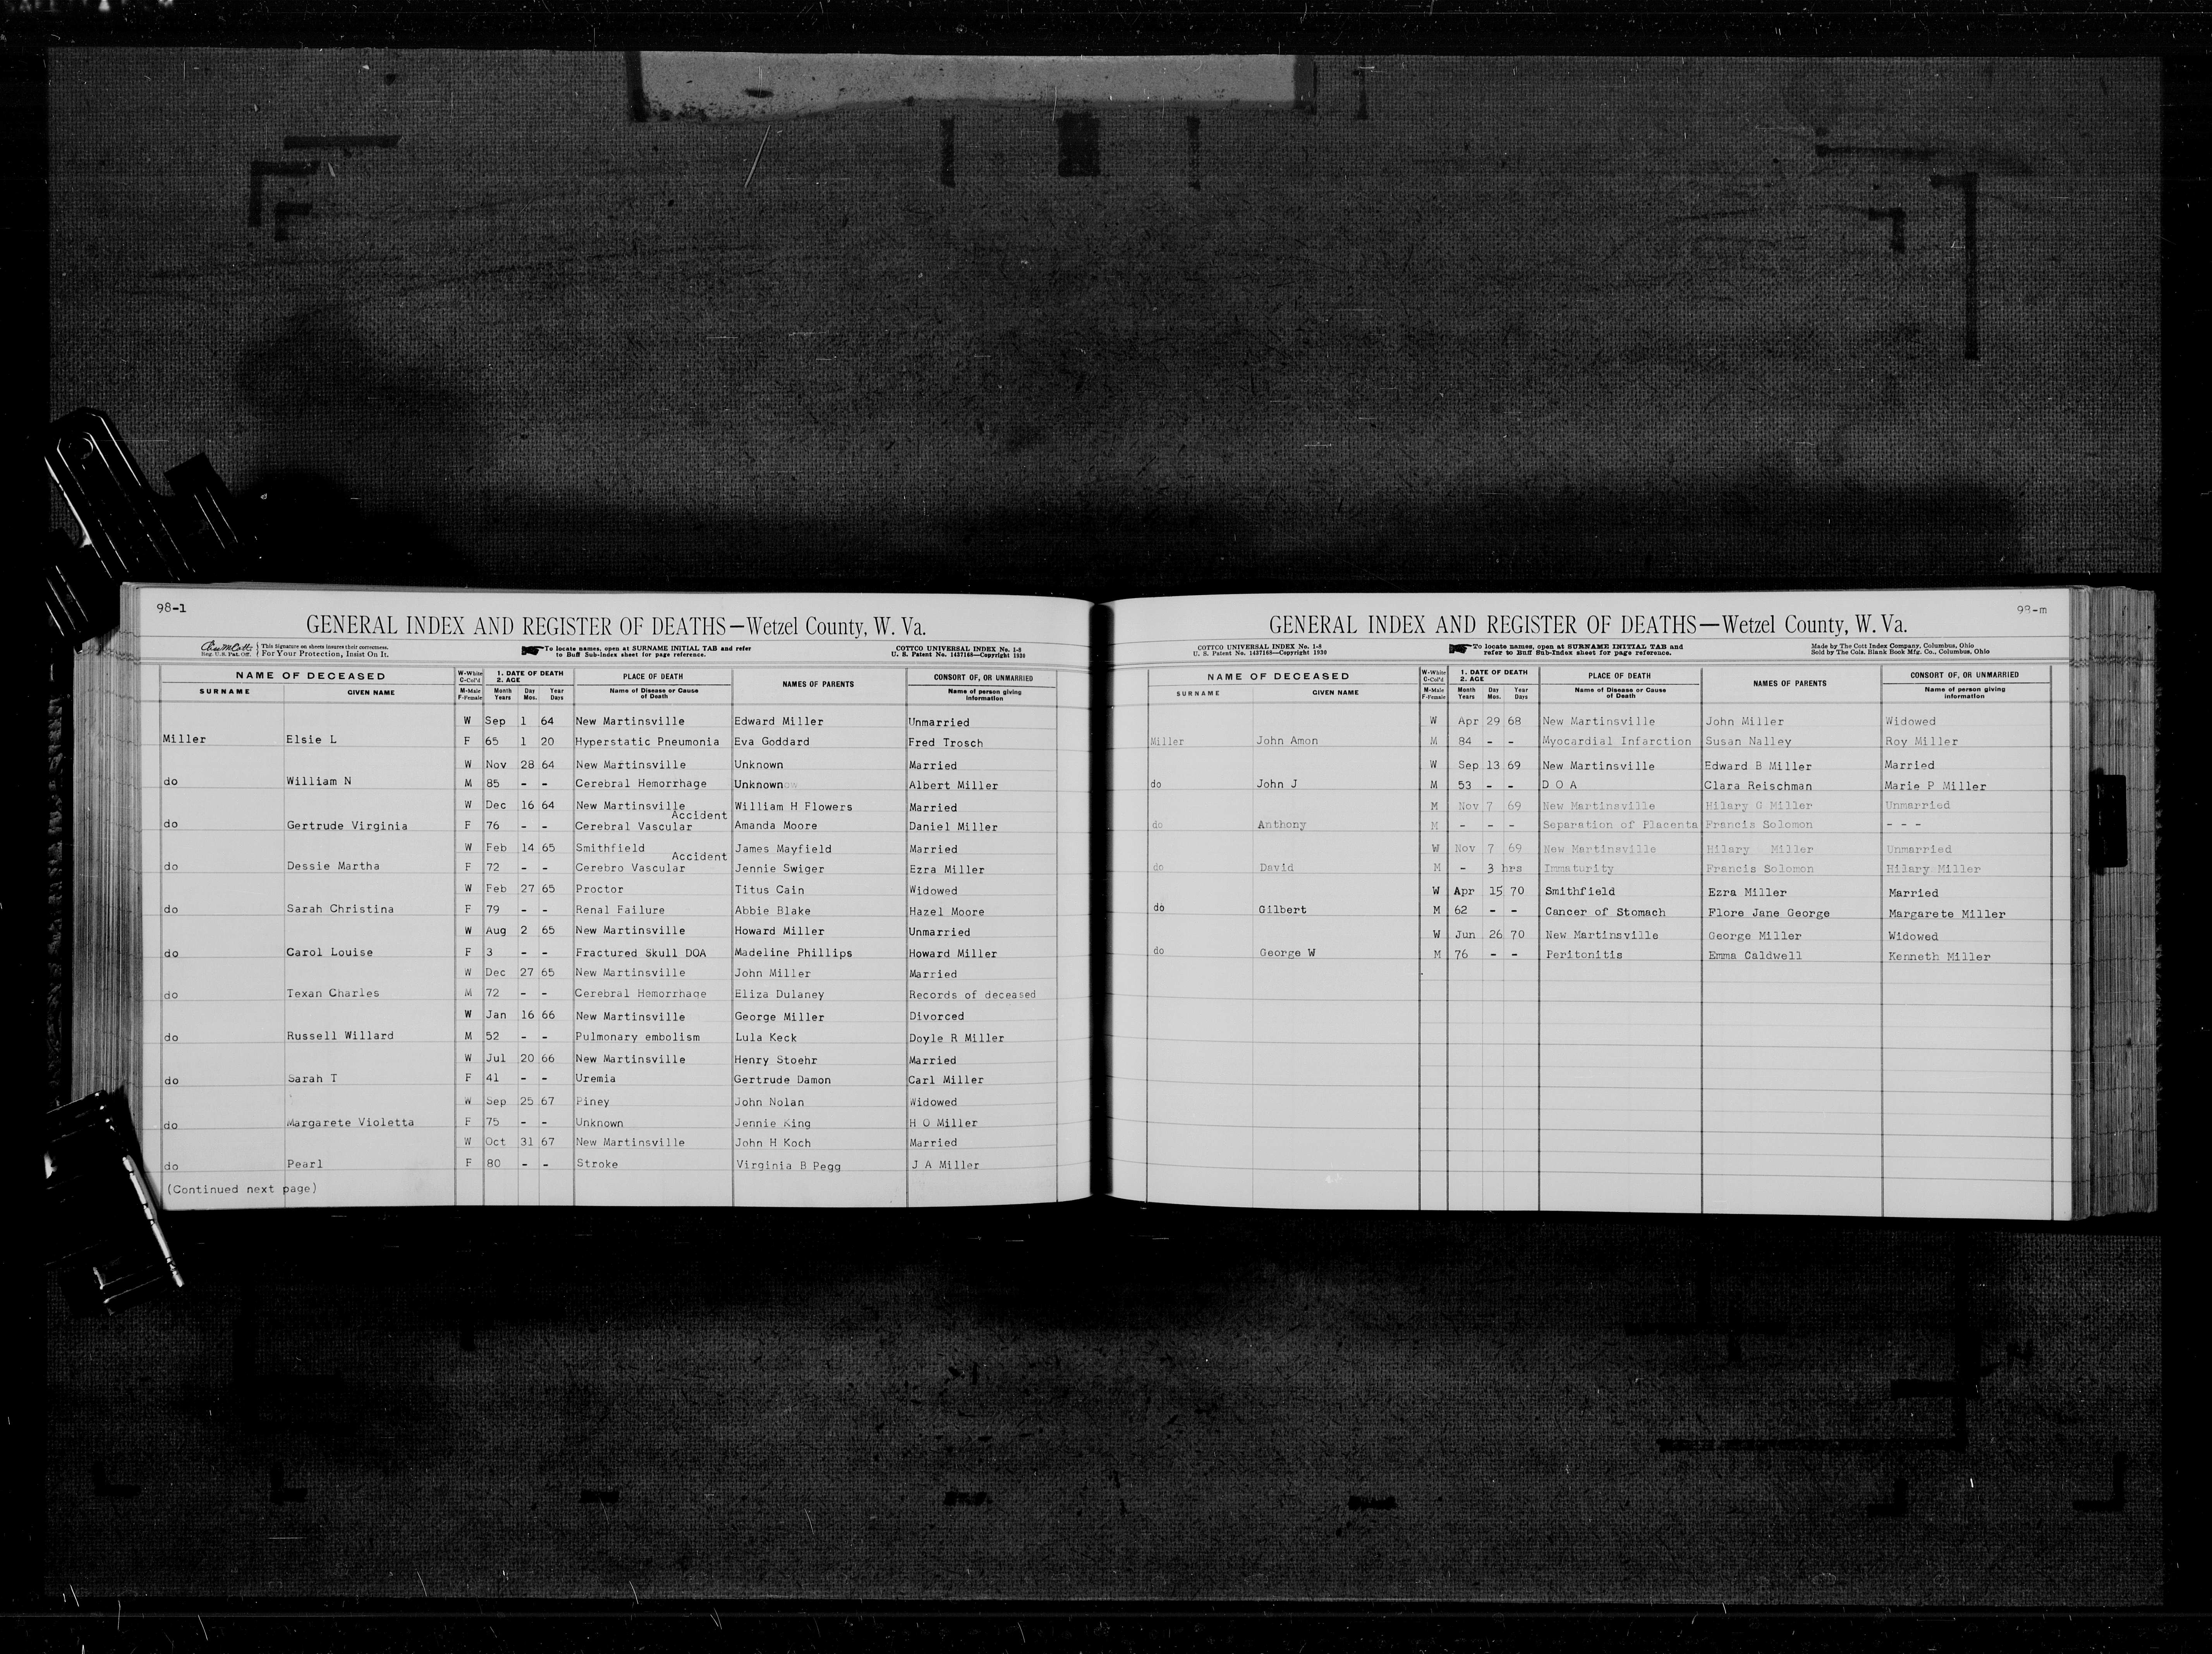 98-1
GENERAL INDEX AND REGISTER OF DEATHS—Wetzel County, W. Va.
Reg. U.S. Pat. Off. { This Signature on sheets insures their correctness. For Your Protection, Insist On It.
To locate names, open at SURNAME INITIAL TAB and refer to Buff Sub-Index sheet for page reference.
COTTCO UNIVERSAL INDEX No. 1-8
U. S. Patent No. 1437168—Copyright 1930
NAME OF DECEASED W-White C-Col'd 1. DATE OF DEATH 2. AGE PLACE OF DEATH NAMES OF PARENTS CONSORT OF, OR UNMARRIED
SURNAME GIVEN NAME M-Male F-Female Month Years Day Mos. Year Days Name of Disease or Cause of Death Name of person giving information
W Sep 1 64 New Martinsville Edward Miller Unmarried
Miller Elsie L F 65 1 20 Hyperstatic Pneumonia Eva Goddard Fred Trosch
W Nov 28 64 New Martinsville Unknown Married
do William N M 85 - - Cerebral Hemorrhage Unknown Albert Miller
W Dec 16 64 New Martinsville William H Flowers Married
Accident
do Gertrude Virginia F 76 - - Cerebral Vascular Amanda Moore Daniel Miller
W Feb 14 65 Smithfield James Mayfield Married
Accident
do Dessie Martha F 72 - - Cerebro Vascular Jennie Swiger Ezra Miller
W Feb 27 65 Proctor Titus Cain Widowed
do Sarah Christina F 79 - - Renal Failure Abbie Blake Hazel Moore
W Aug 2 65 New Martinsville Howard Miller Unmarried
do Carol Louise F 3 - - Fractured Skull DOA Madeline Phillips Howard Miller
W Dec 27 65 New Martinsville John Miller Married
do Texan Charles M 72 - - Cerebral Hemorrhage Eliza Dulaney Records of deceased
W Jan 16 66 New Martinsville George Miller Divorced
do Russell Willard M 52 - - Pulmonary embolism Lula Keck Doyle R Miller
W Jul 20 66 New Martinsville Henry Stoehr Married
do Sarah T F 41 - - Uremia Gertrude Damon Carl Miller
W Sep 25 67 Piney John Nolan Widowed
do Margarete Violetta F 75 - - Unknown Jennie King H O Miller
W Oct 31 67 New Martinsville John H Koch Married
do Pearl F 80 - - Stroke Virginia B Pegg J A Miller
(Continued next page)
98-m
GENERAL INDEX AND REGISTER OF DEATHS—Wetzel County, W. Va.
COTTCO UNIVERSAL INDEX No. 1-8
U. S. Patent No. 1437168—Copyright 1930
To locate names, open at SURNAME INITIAL TAB and refer to Buff Sub-Index sheet for page reference.
Made by The Cott Index Company, Columbus, Ohio
Sold by The Cols. Blank Book Mfg. Co., Columbus, Ohio
NAME OF DECEASED W-White C-Col'd 1. DATE OF DEATH 2. AGE PLACE OF DEATH NAMES OF PARENTS CONSORT OF, OR UNMARRIED
SURNAME GIVEN NAME M-Male F-Female Month Years Day Mos. Year Days Name of Disease or Cause of Death Name of person giving information
W Apr 29 68 New Martinsville John Miller Widowed
Miller John Amon M 84 - - Myocardial Infarction Susan Nalley Roy Miller
W Sep 13 69 New Martinsville Edward B Miller Married
do John J M 53 - - D O A Clara Reischman Marie P Miller
M Nov 7 69 New Martinsville Hilary G Miller Unmarried
do Anthony M - - - Separation of Placenta Francis Solomon - - -
W Nov 7 69 New Martinsville Hilary Miller Unmarried
do David M - 3 hrs Immaturity Francis Solomon Hilary Miller
W Apr 15 70 Smithfield Ezra Miller Married
do Gilbert M 62 - - Cancer of Stomach Flore Jane George Margarete Miller
W Jun 26 70 New Martinsville George Miller Widowed
do George W M 76 - - Peritonitis Emma Caldwell Kenneth Miller